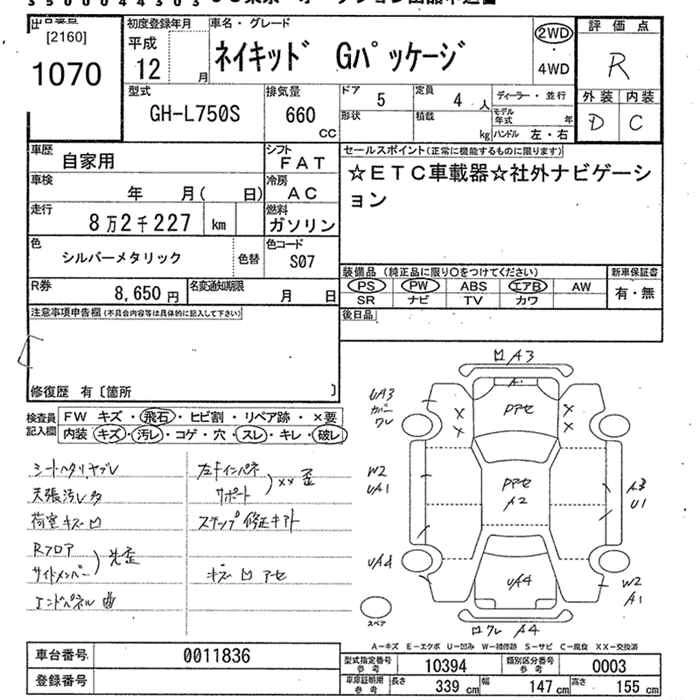 [2160]
1070
初度登録年月
平成
12 月
車名・グレード
ネイキッド Gパッケージ
2WD
・
4WD
評価点
R
外装 内装
D C
型式
GH-L750S
排気量
660
cc
ドア 5
定員 4 人
ディーラー・並行
形状
積載 kg
モデル年式 年
ハンドル 左・右
車歴 自家用
シフト FAT
車検 年 月( 日)
冷房 AC
走行 8万2千227 km
燃料 ガソリン
色 シルバーメタリック 色替
色コード S07
R券 8,650円
名変通知期限 月 日
セールスポイント(正常に機能するものに限ります)
☆ETC車載器☆社外ナビゲーシ
ョン
装備品(純正品に限り○をつけてください)
新車保証書
PS PW ABS エアB AW
有・無
SR ナビ TV カワ
後日品
注意事項申告欄(不具合内容等は具体的に記入して下さい)
修復歴 有〔箇所 〕
検査員
記入欄
FW キズ・飛石・ヒビ割・リペア跡・×要
内装 キズ・汚レ・コゲ・穴・スレ・キレ・破レ
シートヘタリ,ヤブレ
天張汚レ多
荷室キズ凹
Rフロア
サイドメンバー
エンドパネル曲
左Fインパネ
サポート
xx 歪
ステップ修正キアト
キズ 凹 アセ
A3
A1
アセ
UA3
カバー
ワレ
W2
UA1
アセ
A2
A3
U1
UA4
UA4
W2
A1
ワレ A4
スペア
A-キズ E-エクボ U-凹み W-補修跡 S-サビ C-腐食 XX-交換済
車台番号 0011836
登録番号
型式指定番号
参考
10394
類別区分番号
参考
0003
車庫証明用
参考
長さ 339 cm
幅 147 cm
高さ 155 cm